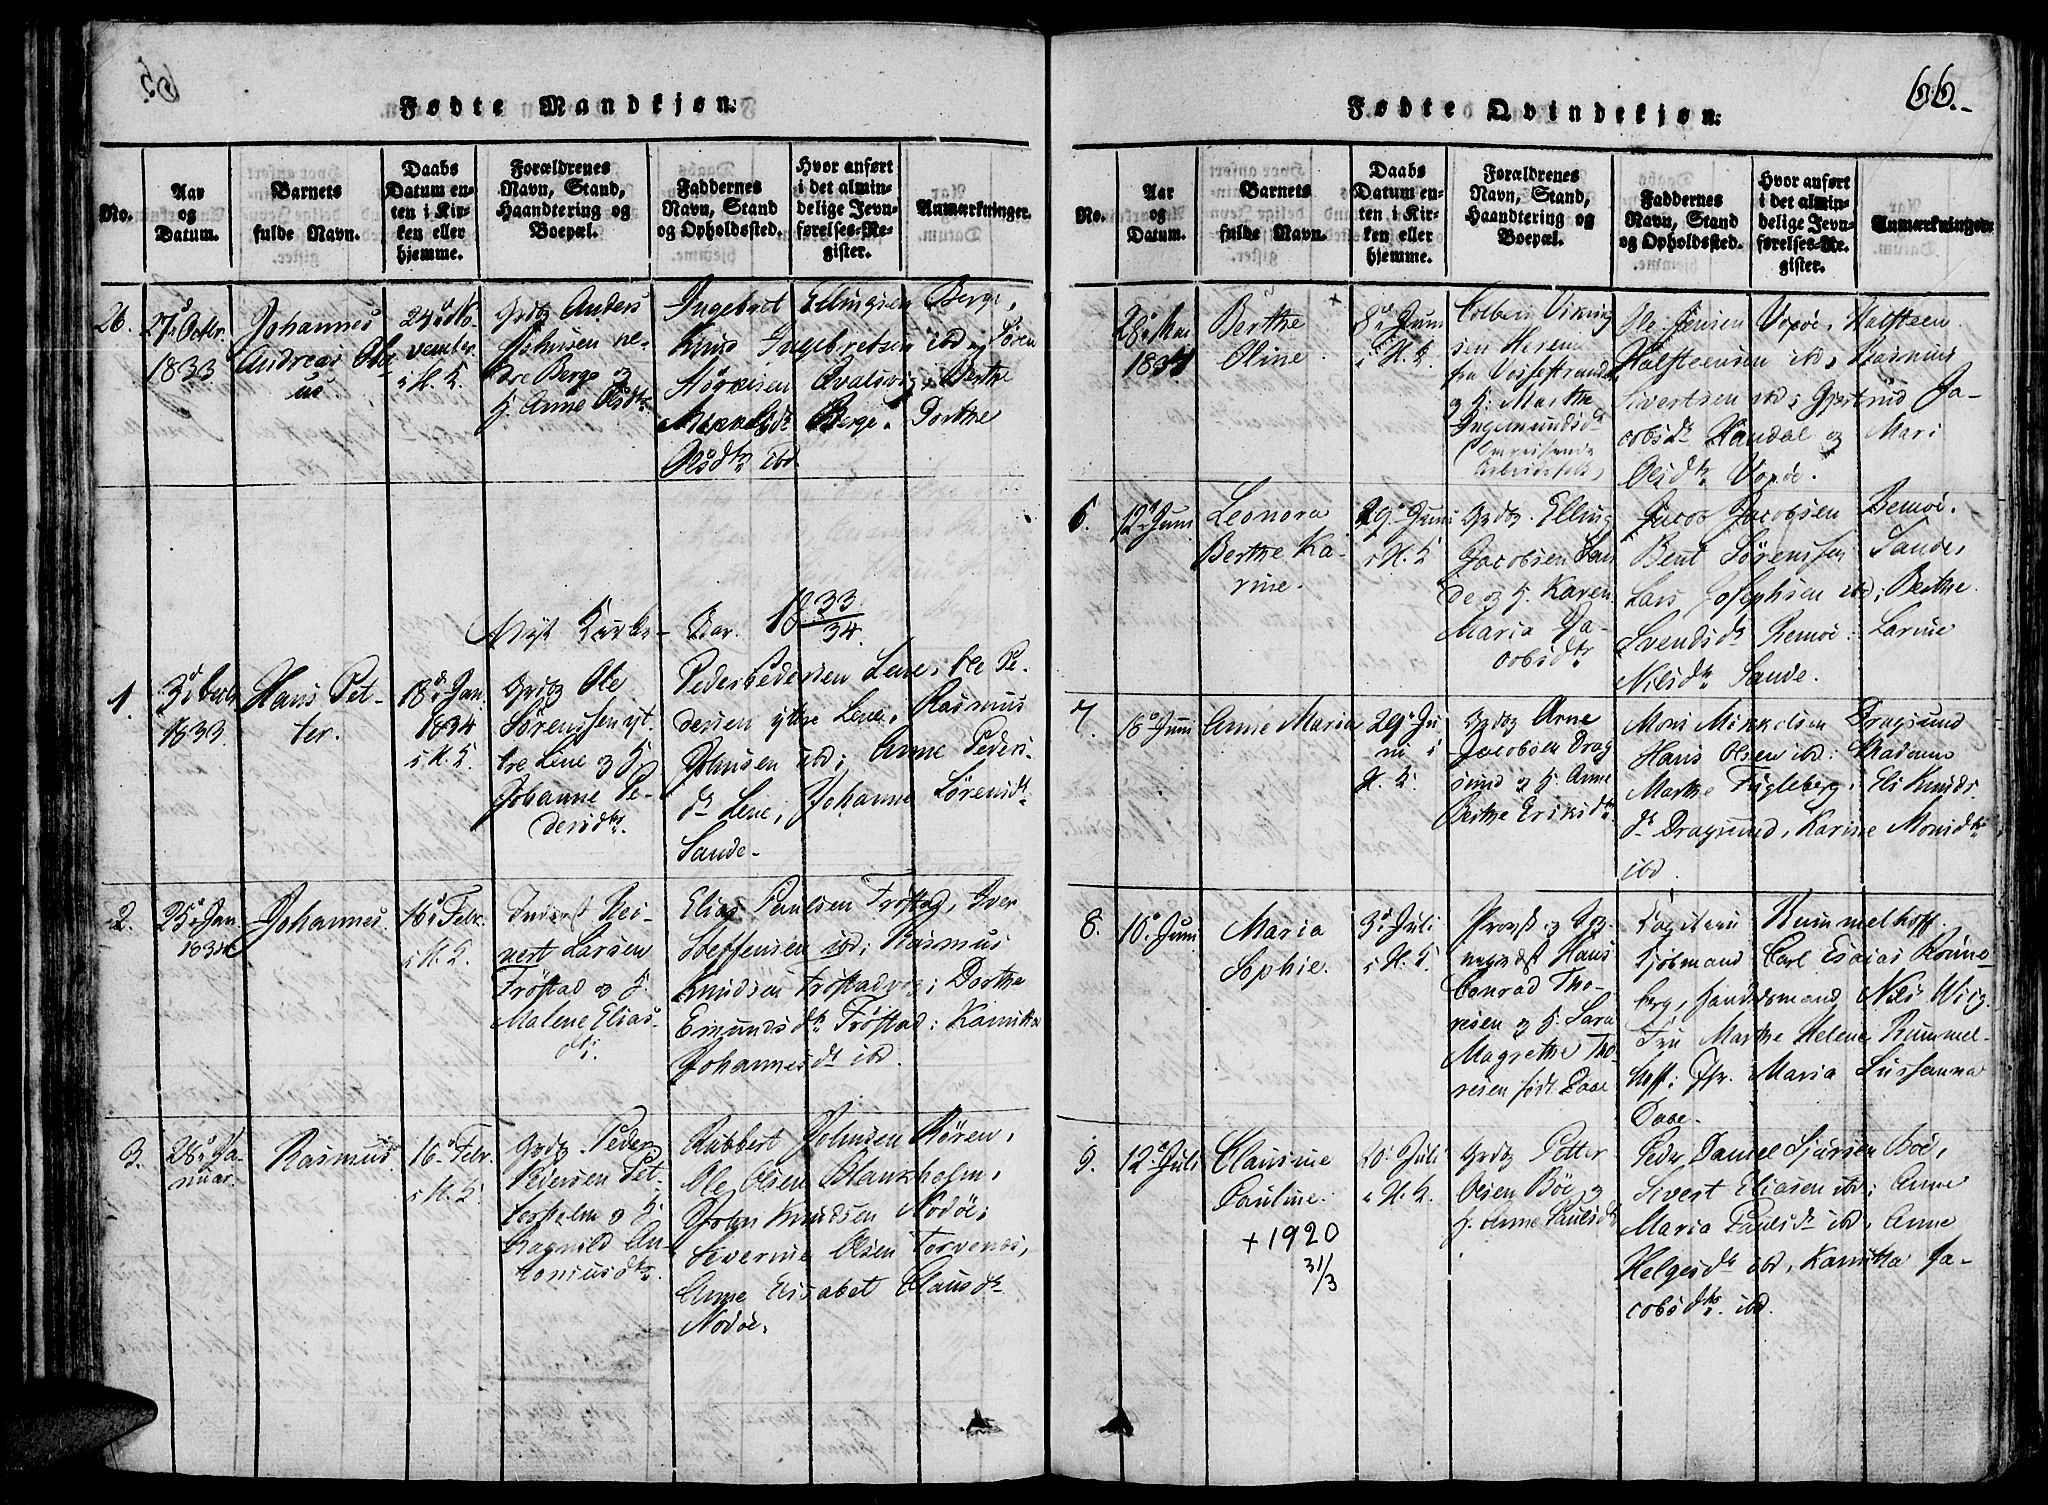 66.-
Fødte Mandkjøn.
No.
Aar
og
Datum.
Barnets
fulde Navn.
Daabs
Datum en-
ten i Kir-
ken eller
hjemme.
Forældrenes
Navn, Stand,
Haandtering og
Boepæl.
Faddernes
Navn, Stand
og Opholdssted.
Hvor anført
i det almin-
delige Jevn-
førelses-Re-
gister.
Anmærkninger.
26.
27d Octbr.
1833
Johannes
Andreas Ola-
us.
24d No-
vember
i H. K.
Grdbg Anders
ne-
dre Berge og
H. Anne Olsdtr.
Ingebret Ellingsen Berge,
Knud Ingebretsen ibd; Sören
Qvalsvig; Berthe
Berge. Dorthe
Olsdtr ibd.
Nyt Kirke-Aar. 1833/34.
1.
3d Decbr
1833.
Hans Pet-
ter.
18d Jan.
1834
i H. K.
Grdbg Ole
Sörenssen yt-
tre Lene og H.
Johanne Pe-
dersdtr.
Peder Pedersen Lene, Ole Pe-
dersen yttre Lene, Rasmus
Hansen ibd; Anne Peders-
dtr Lene, Johanne Sörensdtr
Sande-
2.
25d Jan
1834
Johannes.
16d Febr.
i H. K.
Inderst Rei-
nert Larsen
Fröstad og H.
Malene Elias-
dtr.
Elias Paulsen Fröstad, Iver
Steffensen ibd; Rasmus
Knudsen Fröstadvog; Dorthe
Emundsdtr Fröstad; Kanutte
Johannesdtr ibd.
3.
28d Ja-
nuar.
Rasmus.
16d Febr.
i H. K.
Grdbg Peder
Pedersen Pet-
terholm og H.
Ragnild An-
toniusdtr.
Rubbert Johnsen Rören,
Ole Olsen Blankholm,
John Knudsen Nödöe;
Severine Olsen Torvenæs,
Anne Elisabet Clausdtr
Nödöe.
Fødte Qvindekjøn.
No.
Aar
og
Datum.
Barnets
fulde Navn.
Daabs
Datum en-
ten i Kir-
ken eller
hjemme.
Forældrenes
Navn, Stand,
Haandtering og
Boepæl.
Faddernes
Navn, Stand
og Opholdssted.
Hvor anført
i det almin-
delige Jevn-
førelses-Re-
gister.
Anmærkninger.
28d Mai
1834
Berthe
Oline.
8d Juni
i H. K.
Colbein Viking-
sen
fra Vossestranden
og H. Marthe
Ingemundsdtr
omreisende
Arbeidsfolk,
Ole Jensen Voxöe, Halsteen
Halsteensen ibd, Rasmus
Sivertsen ibd; Gjertrud Ja-
cobsdtr Handal og Mari
Olsdtr Voxöe.
6.
12d Juni
Leonora
Berthe Ka-
rine.
29d Juni
i H. K.
Grdbg. Elling
Jacobsen San-
de og H. Karen
Maria Ja-
cobsdtr
Jacob Jacobsen Remöe.
Bent Sörenssen Sande,
Lars Josephsen ibd; Berthe
Svendsdtr Remöe: Larine
Nilsdtr Sande.
7.
18d Juni
Anne Maria
29d Ju-
ni i
H. K.
Grdbg Arne
Jacobsen Drag-
sund og H. Anne
Berthe Eriksdtr.
Mons Mikkelsen Dragsund
Hans Olsen ibd: Madame
Marthe Fugleberg, Eli Knuds-
dtr Dragsund, Karine Monsdtr
ibd.
8.
10d Juni
Maria
Sophie.
3d Juli
i H. K.
Provst og Sog-
nepræst Hans
Conrad Tho-
resen og H. Sara
Magrethe Tho-
resen født Daae
Capitain Rummelhoff.
Kjöbmand Carl Esaias Rönne-
berg, Handelsmand Nils Wiig.
Fru Marthe Helene Rummel-
hoff; Jfr. Maria Sussanna
Daae.
9.
12d Juli
Clausine
Pauline.
+ 1920
31/3
20d Juli
i H. K.
Grdbg Petter
Olsen Böe og
H. Anne Paulsdtr
Peder Daniel Sjursen Böe,
Sivert Eliasen ibd; Anne
Maria Paulsdtr ibd, Anne
Helgesdtr ibd, Kanutta Ja-
cobsdtr. ibd.